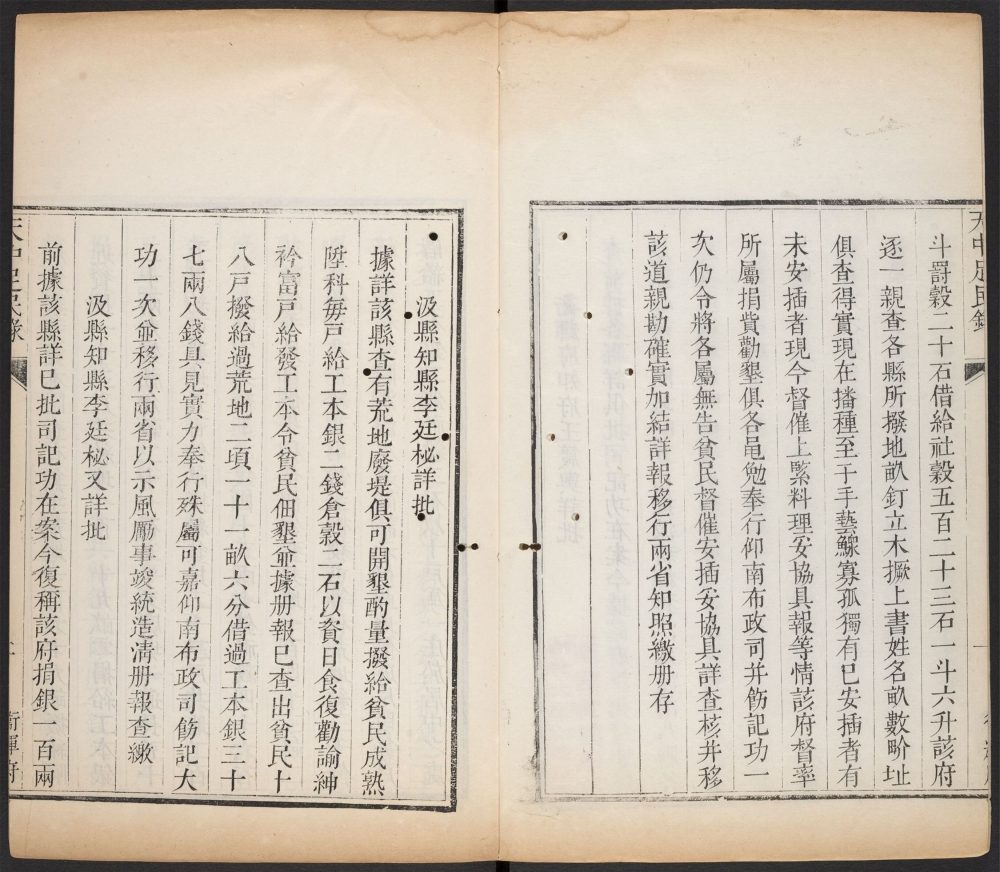 天中足民錄
斗罸穀二十石借給社穀五百二十三石一斗六升該府
逐一親查各縣所撥地畝釘立木撅上書姓名畝數畍址
俱查得實現在播種至于手藝鰥寡孤獨有巳安插者有
未安插者現今督催上緊料理妥協具報等情該府督率
所屬捐貲勸墾俱各黽勉奉行仰南布政司并飭記功一
次仍令將各屬無告貧民督催安插妥協具詳查核并移
該道親勘確實加結詳報移行兩省知照繳册存
汲縣知縣李廷秘詳批
據詳該縣查有荒地廢堤俱可開墾酌量撥給貧民成熟
陞科每戸給工本銀二錢倉穀二石以資日食復勸諭紳
衿富戸給發工本令貧民佃墾並據册報巳查出貧民十
八戸撥給過荒地二項一十一畝六分借過工本銀三十
七兩八錢具見實力奉行殊屬可嘉仰南布政司飭記大
功一次並移行兩省以示風厲事竣統造清册報查繳
汲縣知縣李廷秘又詳批
前據該縣詳巳批司記功在案今復稱該府捐銀一百兩
天中足民錄
衛輝府